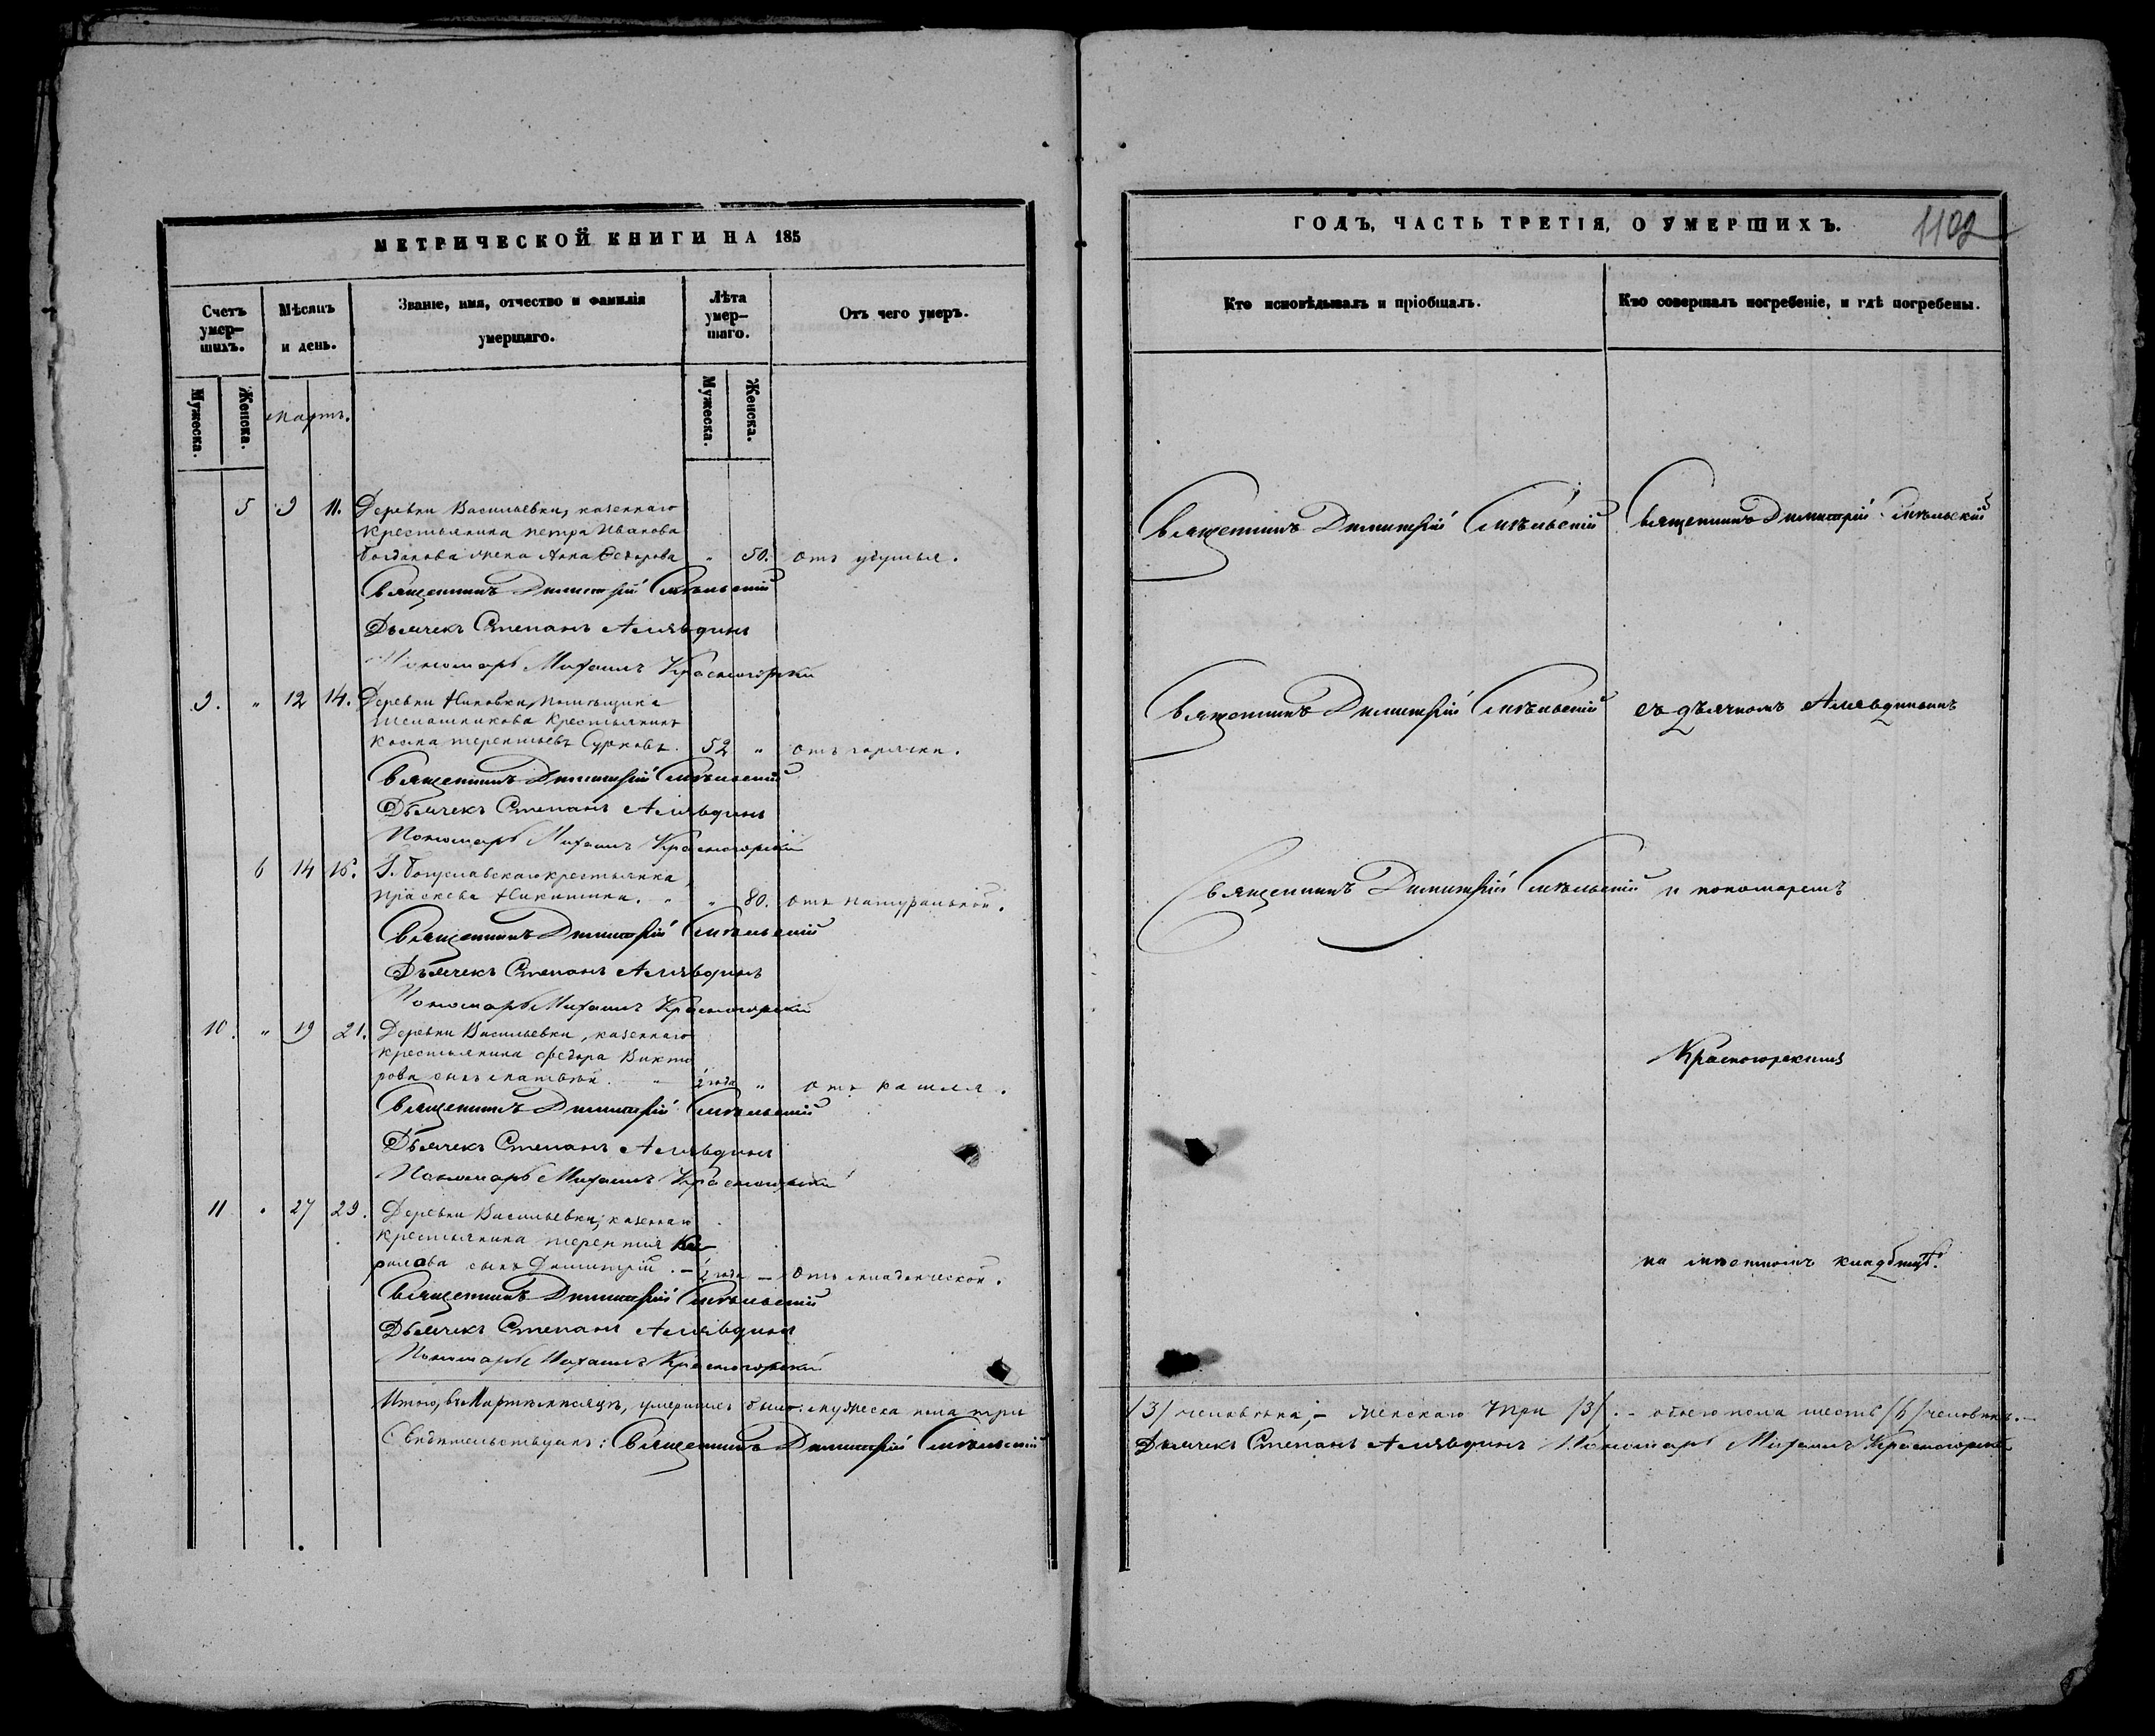 МЕТРИЧЕСКОЙ КНИГИ НА 185
Счетъ умер-шихъ.
Мѣсяцъ и день.
Званіе, имя, отчество и фамилія умершаго.
Лѣта умер-шаго.
Отъ чего умеръ.
Мужеска.
Женска.
Мартъ.
Мужеска.
Женска.
5 9 11. Деревни Васильевки, казеннаго
крестьянина Петра Иванова
Богданова жена Анна Ѳедорова " 50. отъ удушья.
Священникъ Димитрій
Дьячекъ Степанъ Алявдинъ
Пономарь Михаилъ Красногорскій
9. " 12 14. Деревни помѣщика
крестьянинъ
Козма Терентьевъ Сурковъ. 52 " отъ горячки.
Священникъ Димитрій
Дьячекъ Степанъ Алявдинъ
Пономарь Михаилъ Красногорскій
6 14 16. крестьянка
Праскева Никитина. " " 80. отъ натуральной.
Священникъ Димитрій
Дьячекъ Степанъ Алявдинъ
Пономарь Михаилъ Красногорскій
10. " 19 21. Деревни Васильевки, казеннаго
крестьянина Федора Викто
рова сынъ Матвѣй. " ½ года " отъ кашля.
Священникъ Димитрій
Дьячекъ Степанъ Алявдинъ
Пономарь Михаилъ Красногорскій
11 " 27 29. Деревни Васильевки, казеннаго
крестьянина Терентія
сынъ Димитрій. – ½ года – отъ младенческой.
Священникъ Димитрій
Дьячекъ Степанъ Алявдинъ
Пономарь Михаилъ Красногорскій
Итого, въ Мартѣ мѣсяцѣ, умершихъ было: мужеска пола три
Свидѣтельствуемъ: Священникъ Димитрій
ГОДЪ, ЧАСТЬ ТРЕТІЯ, О УМЕРШИХЪ.
1102
Кто исповѣдывалъ и пріобщалъ.
Кто совершалъ погребеніе, и гдѣ погребены.
Священникъ Димитрій
Священникъ Димитрій
Священникъ Димитрій
съ дьячкомъ Алявдинымъ
Священникъ Димитрій
и пономаремъ
Красногорскимъ
на мѣстномъ кладбищѣ.
/3/ человѣка; – женскаго три /3/. – обоего пола шесть /6/ человѣкъ. –
Дьячекъ Степанъ Алявдинъ Пономарь Михаилъ Красногорскій